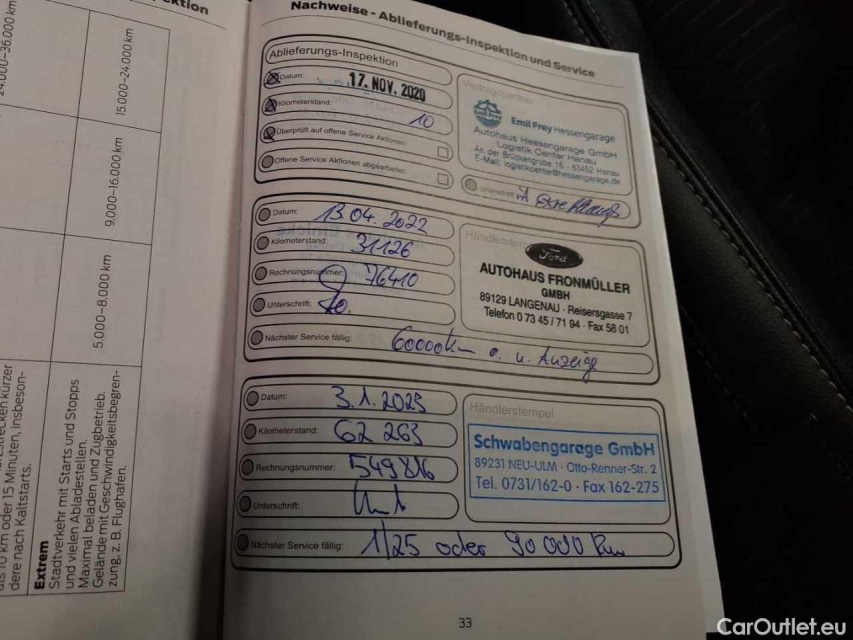 ktion
24.000–36.000 km
15.000–24.000 km
9.000–16.000 km
5.000–8.000 km
km oder 15 Minuten, insbeson-
dere nach Kaltstarts.
Extrem
Stadtverkehr mit Starts und Stopps
und vielen Abladestellen.
Maximal beladen und Zugbetrieb.
Gelände mit Geschwindigkeitsbegren-
zung, z. B. Flughafen.
Nachweise - Ablieferungs-Inspektion und Service
Ablieferungs-Inspektion
Datum: 17. NOV. 2020
Kilometerstand: 10
Überprüft auf offene Service Aktionen:
Offene Service Aktionen abgearbeitet:
Vertragspartner
Emil Frey Hessengarage
Autohaus Hessengarage GmbH
Logistik Center Hanau
An der Brückengrube 16 - 63452 Hanau
E-Mail: logistikcenter@hessengarage.de
Unterschrift:
Datum: 13.04.2022
Kilometerstand: 31126
Rechnungsnummer: 76410
Unterschrift:
Nächster Service fällig: 60000km o. n. Anzeige
Händlerstempel
Ford
AUTOHAUS FRONMÜLLER
GMBH
89129 LANGENAU · Reisersgasse 7
Telefon 0 73 45 / 71 94 · Fax 58 01
Datum: 3.1.2023
Kilometerstand: 62 263
Rechnungsnummer: 549816
Unterschrift:
Nächster Service fällig: 1/25 oder 90 000 km
Händlerstempel
Schwabengarage GmbH
89231 NEU-ULM · Otto-Renner-Str. 2
Tel. 0731/162-0 · Fax 162-275
33
CarOutlet.eu